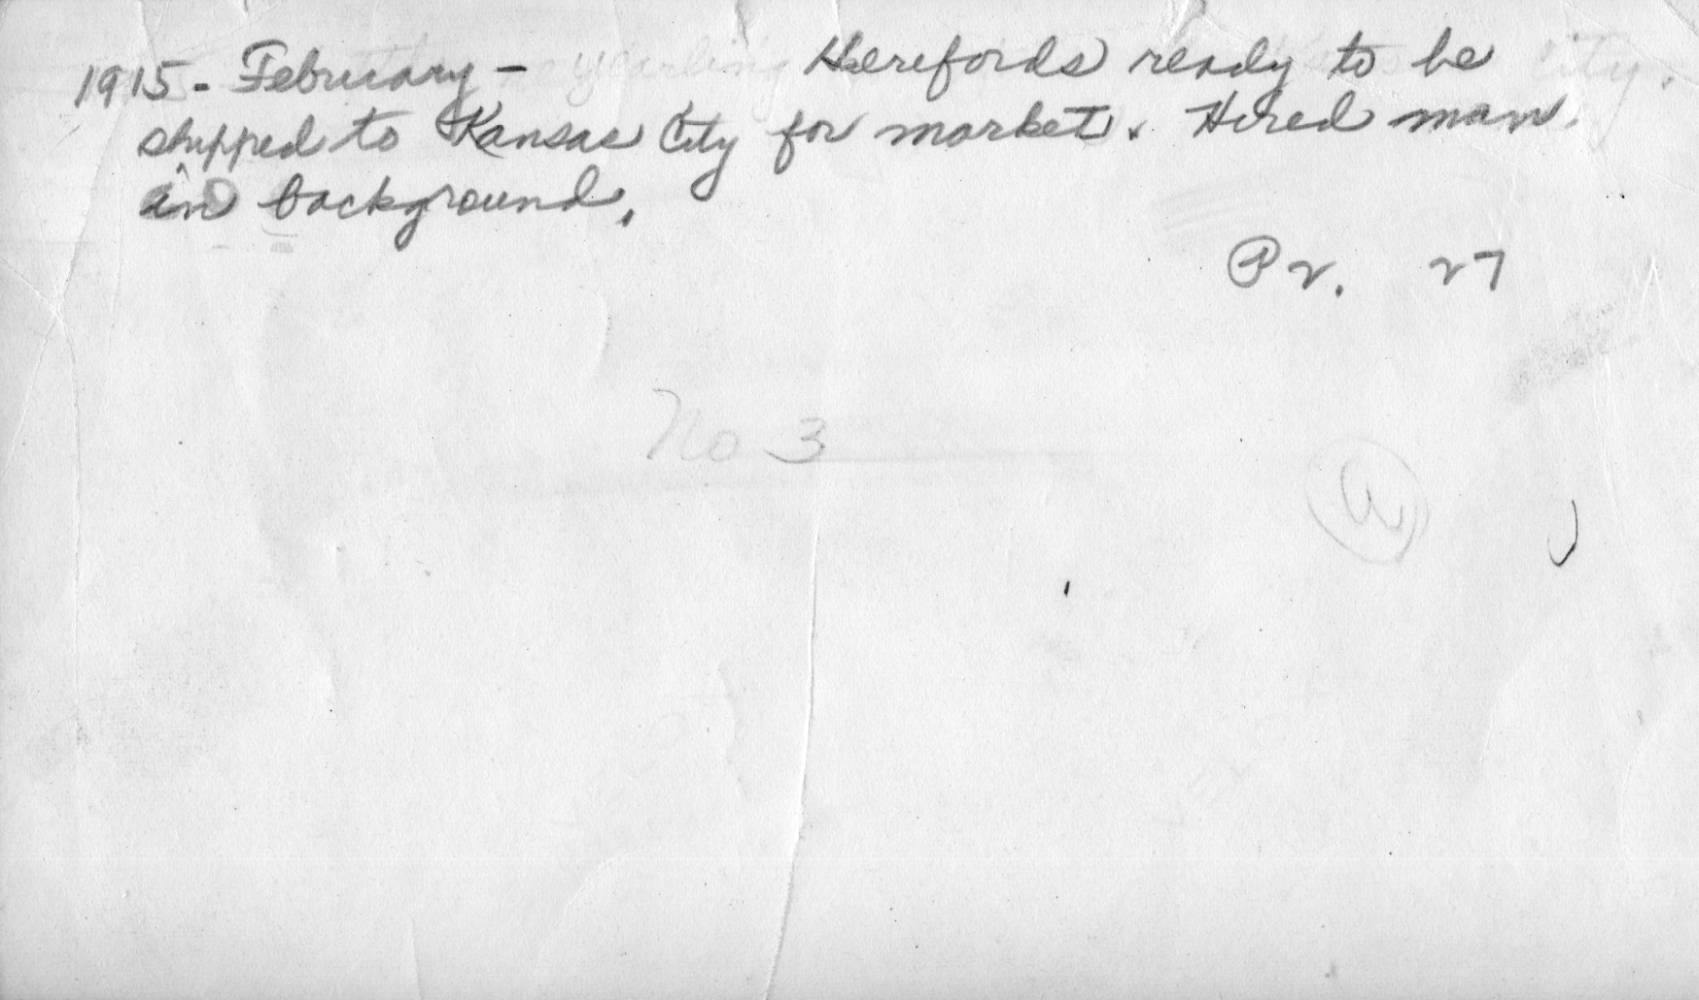 1915 - February - yearling Herefords ready to be city.
shipped to Kansas City for market. Hired man
in background.
Pr. 27
No 3
a